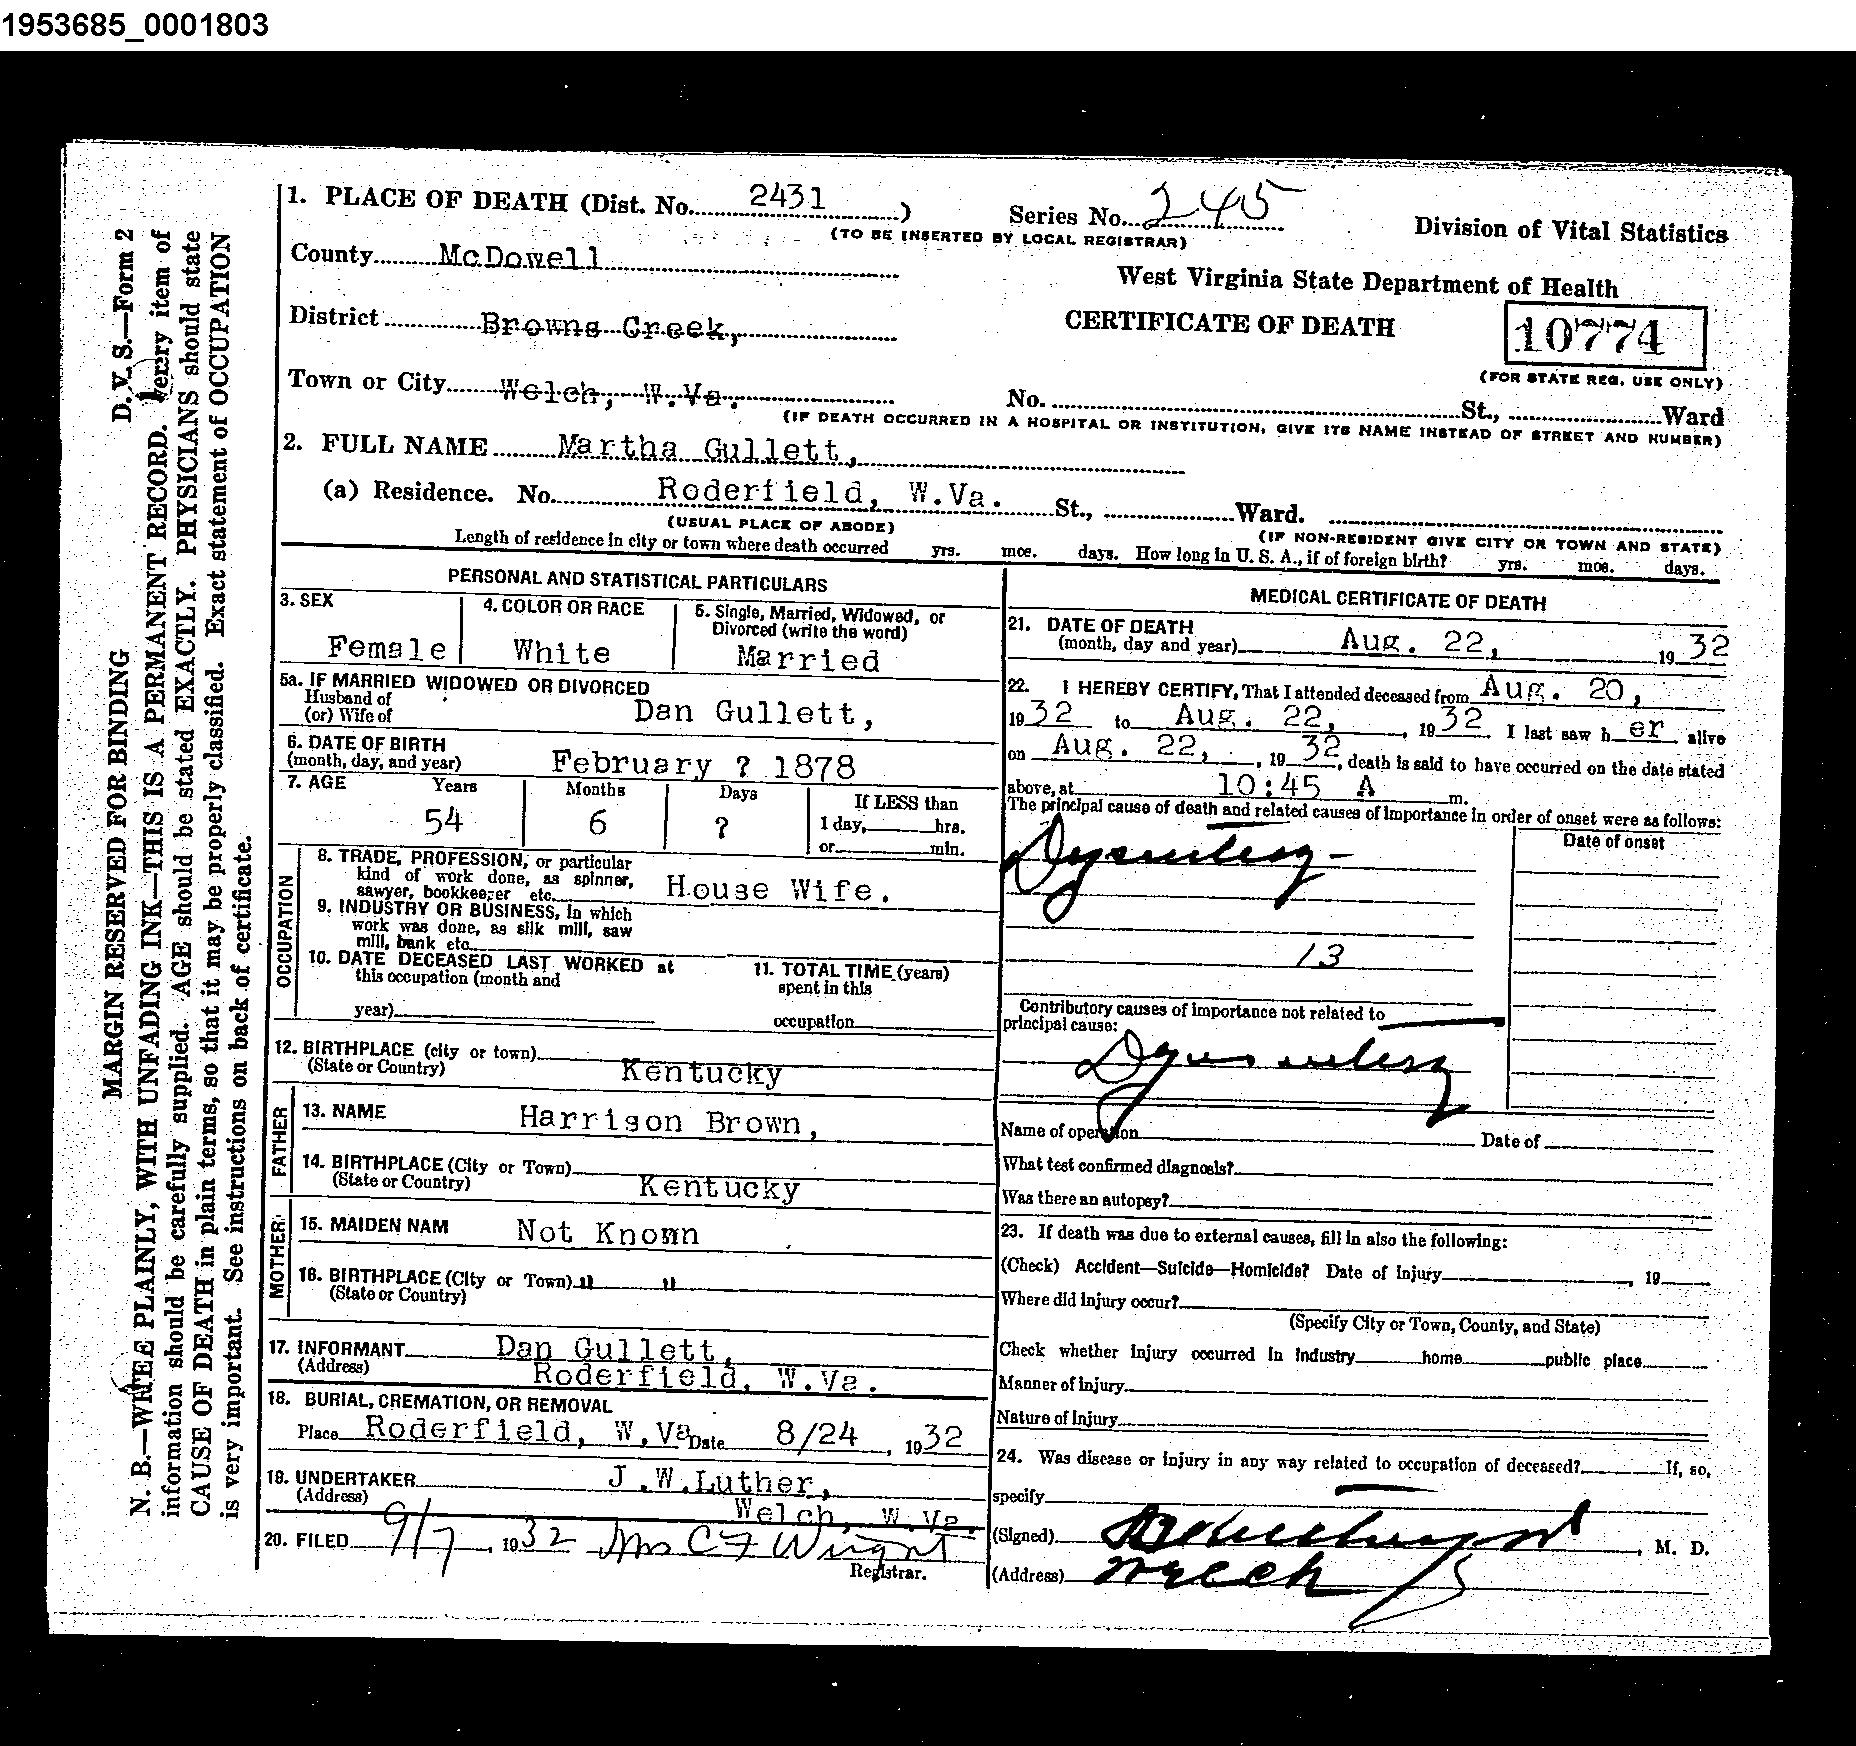 1953685_0001803
1. PLACE OF DEATH (Dist. No. 2431 )
Series No. 245
(TO BE INSERTED BY LOCAL REGISTRAR)
Division of Vital Statistics
County McDowell
West Virginia State Department of Health
District Browns Creek,
CERTIFICATE OF DEATH
10774
(FOR STATE REG. USE ONLY)
Town or City Welch, W.Va.
No. St., Ward
(IF DEATH OCCURRED IN A HOSPITAL OR INSTITUTION, GIVE ITS NAME INSTEAD OF STREET AND NUMBER)
2. FULL NAME Martha Gullett,
(a) Residence. No. Roderfield, W.Va. St., Ward.
(USUAL PLACE OF ABODE)
(IF NON-RESIDENT GIVE CITY OR TOWN AND STATE)
Length of residence in city or town where death occurred yrs. mos. days. How long in U. S. A., if of foreign birth? yrs. mos. days.
PERSONAL AND STATISTICAL PARTICULARS
3. SEX
Female
4. COLOR OR RACE
White
5. Single, Married, Widowed, or
Divorced (write the word)
Married
5a. IF MARRIED WIDOWED OR DIVORCED
Husband of
(or) Wife of Dan Gullett,
6. DATE OF BIRTH
(month, day, and year) February ? 1878
7. AGE Years Months Days
54 6 ?
If LESS than
1 day, hrs.
or min.
OCCUPATION
8. TRADE, PROFESSION, or particular
kind of work done, as spinner,
sawyer, bookkeeper etc. House Wife.
9. INDUSTRY OR BUSINESS, in which
work was done, as silk mill, saw
mill, bank etc.
10. DATE DECEASED LAST WORKED at
this occupation (month and
year)
11. TOTAL TIME (years)
spent in this
occupation
12. BIRTHPLACE (city or town)
(State or Country) Kentucky
FATHER
13. NAME Harrison Brown,
14. BIRTHPLACE (City or Town)
(State or Country) Kentucky
MOTHER
15. MAIDEN NAM Not Known
16. BIRTHPLACE (City or Town) " "
(State or Country)
17. INFORMANT Dan Gullett,
(Address) Roderfield, W.Va.
18. BURIAL, CREMATION, OR REMOVAL
Place Roderfield, W.Va Date 8/24, 1932
19. UNDERTAKER J.W.Luther,
(Address) Welch, W.Va.
20. FILED 9/7, 1932 Mrs C F Wright
Registrar.
MEDICAL CERTIFICATE OF DEATH
21. DATE OF DEATH
(month, day and year) Aug. 22, 1932
22. I HEREBY CERTIFY, That I attended deceased from Aug. 20,
1932 to Aug. 22, , 1932 I last saw her alive
on Aug. 22, , 1932, death is said to have occurred on the date stated
above, at 10:45 A m.
The principal cause of death and related causes of importance in order of onset were as follows:
Date of onset
Dysentery
13
Contributory causes of importance not related to
principal cause:
Dysentery
Name of operation Date of
What test confirmed diagnosis?
Was there an autopsy?
23. If death was due to external causes, fill in also the following:
(Check) Accident—Suicide—Homicide? Date of Injury , 19
Where did injury occur?
(Specify City or Town, County, and State)
Check whether injury occurred in industry home public place
Manner of injury
Nature of Injury
24. Was disease or injury in any way related to occupation of deceased? If, so,
specify
(Signed) , M. D.
(Address) Welch
D. V. S.—Form 2
MARGIN RESERVED FOR BINDING
N. B.—WRITE PLAINLY, WITH UNFADING INK—THIS IS A PERMANENT RECORD. Every item of
information should be carefully supplied. AGE should be stated EXACTLY. PHYSICIANS should state
CAUSE OF DEATH in plain terms, so that it may be properly classified. Exact statement of OCCUPATION
is very important. See instructions on back of certificate.